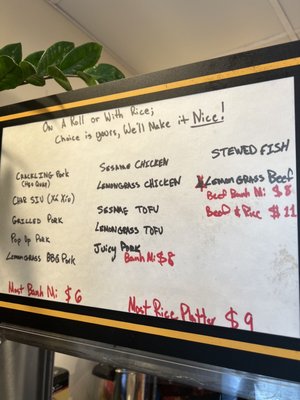 On A Roll or With Rice;
Choice is yours, We'll Make it Nice!
Crackling Pork
(Heo Quay)
Char Siu (Xá Xíu)
Grilled Pork
Pop Up Pork
Lemongrass BBQ Pork
Sesame Chicken
Lemongrass Chicken
Sesame Tofu
Lemongrass Tofu
Juicy Pork
Banh Mi $8
Stewed Fish
Lemongrass Beef
Beef Banh Mi $8
Beef & Rice $11
Most Banh Mi $6
Most Rice Platter $9